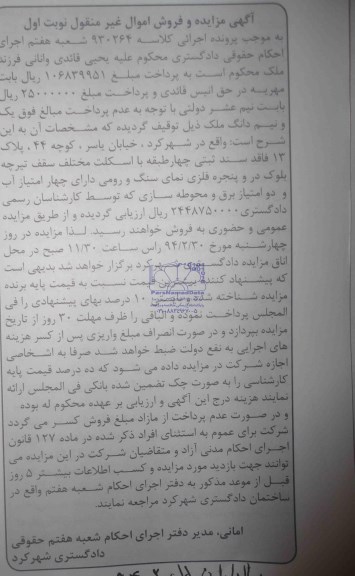 آگهی مزایده و فروش اموال غیر منقول نوبت اول
به موجب پرونده اجرائی کلاسه ۹۳۰۲۶۴ شعبه هفتم اجرای
احکام حقوقی دادگستری محکوم علیه یحیی قائدی وانانی فرزند
ملک محکوم است به پرداخت مبلغ ۱۰۶۸۳۹۹۵۱ ریال بابت
مهریه در حق انیس قائدی و پرداخت مبلغ ۲۵۰۰۰۰۰۰ ریال
بابت نیم عشر دولتی با توجه به عدم پرداخت مبالغ فوق یک
و نیم دانگ ملک ذیل توقیف گردیده که مشخصات آن به این
شرح است: واقع در شهرکرد ، خیابان یاسر ، کوچه ۴۴ ، پلاک
۱۳ فاقد سند ثبتی چهارطبقه با اسکلت مختلف سقف تیرچه
بلوک در و پنجره فلزی نمای سنگ و رومی دارای چهار امتیاز آب
و دو امتیاز برق و محوطه سازی که توسط کارشناسان رسمی
دادگستری ۲۴۴۸۷۵۰۰۰۰ ریال ارزیابی گردیده و از طریق مزایده
عمومی و حضوری به فروش خواهند رسید. لذا مزایده در روز
چهارشنبه مورخ ۹۴/۲/۳۰ راس ساعت ۱۱/۳۰ صبح در محل
اتاق مزایده دادگستری شهرکرد برگزار خواهد شد بدیهی است
که پیشنهاد کننده قیمت نسبت به قیمت پایه برنده
مزایده شناخته شده و بایستی ۱۰ درصد بهای پیشنهادی را فی
المجلس پرداخت نموده و الباقی را ظرف مهلت ۳۰ روز از تاریخ
مزایده بپردازد و در صورت انصراف مبلغ واریزی پس از کسر هزینه
های اجرایی به نفع دولت ضبط خواهد شد صرفا به اشخاصی
اجازه شرکت در مزایده داده می شود که ده درصد قیمت پایه
کارشناسی را به صورت چک تضمین شده بانکی فی المجلس ارائه
نمایند هزینه درج این آگهی و ارزیابی بر عهده محکوم له بوده
و در صورت عدم پرداخت از مازاد مبلغ فروش کسر می گردد
شرکت برای عموم به استثنای افراد ذکر شده در ماده ۱۲۷ قانون
اجرای احکام مدنی آزاد و متقاضیان شرکت در این مزایده می
توانند جهت بازدید مورد مزایده و کسب اطلاعات بیشتر ۵ روز
قبل از موعد مذکور به دفتر اجرای احکام شعبه هفتم واقع در
ساختمان دادگستری شهرکرد مراجعه نمایند.
امانی، مدیر دفتر اجرای احکام شعبه هفتم حقوقی
دادگستری شهرکرد